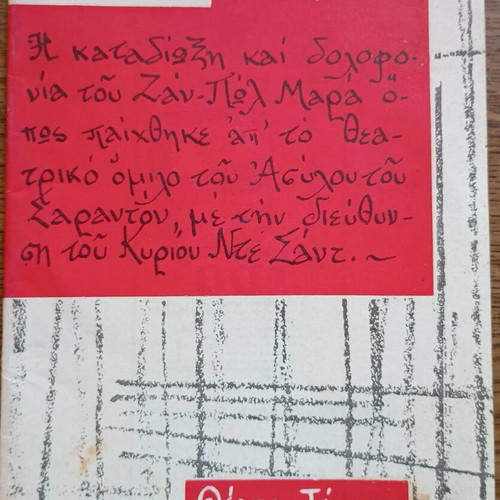 Η καταδίωξη καί δολοφο-
νία τοῦ Ζάν-Πώλ Μαρά ὅ-
πως παίχθηκε ἀπ' τό θεα-
τρικό ὅμιλο τοῦ Ἀσύλου τοῦ
Σαραντόν, μέ τήν διεύθυν-
ση τοῦ Κυρίου Ντέ Σάντ.~